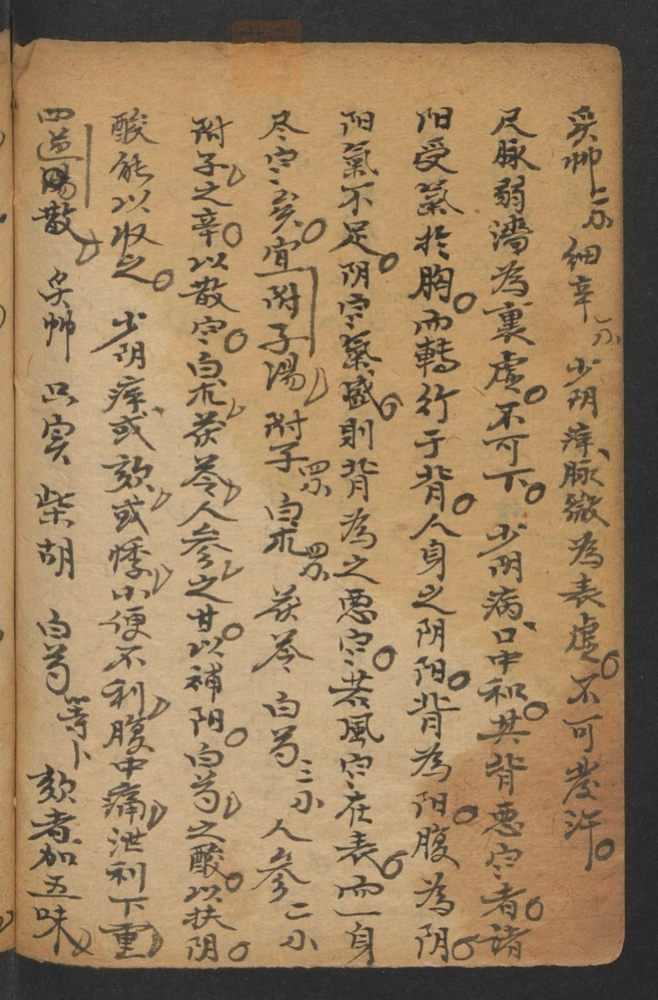 炙艸二分 细辛一分 少阴痒脉微為表虚不可发汗
尺脉弱濇為裏虚不可下 少阴病口中和其背恶寒者諸
阳受氣於胸而轉行于背人身之阴阳背為阳腹為阴
阳氣不足阴寒氣盛則背為之恶寒若風寒在表而一身
尽寒矣宜附子湯 附子四分 白朮四分 茯苓 白芍三分 人参二分
附子之辛以散寒白朮茯苓人参之甘以補阳白芍之酸以扶阴
酸能以收之 少阴痒或欬或悸小便不利腹中痛泄利下重
四逆湯散 炙艸 只实 柴胡 白芍等卜 欬者加五味